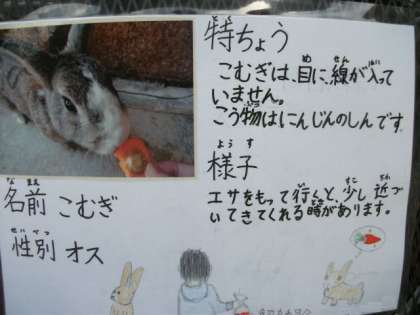 特ちょう
こむぎは、目に線が入って
いません。
こう物はにんじんのしんです。
様子
エサをもって行くと、少し近づ
いてきてくれる時があります。
名前 こむぎ
性別 オス